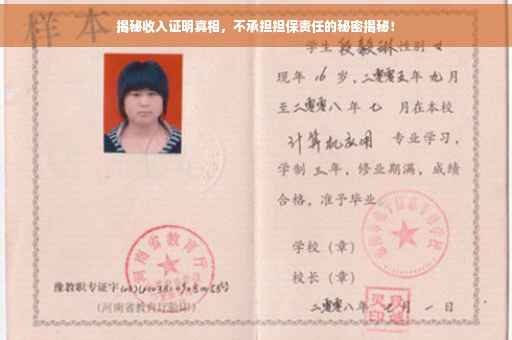 揭秘收入证明真相，不承担担保责任的秘密揭秘！
样本
学生 段毅琳 性别 女
现年 16 岁，二零零五年 九 月
至二零零八 年 七 月在本校
计算机应用 专业学习，
学制 三 年，修业期满，成绩
合格，准予毕业。
学校（章）
校长（章）
二零零八年 七 月 一 日
河南省教育厅
豫教职专证字
(河南省教育厅验印)